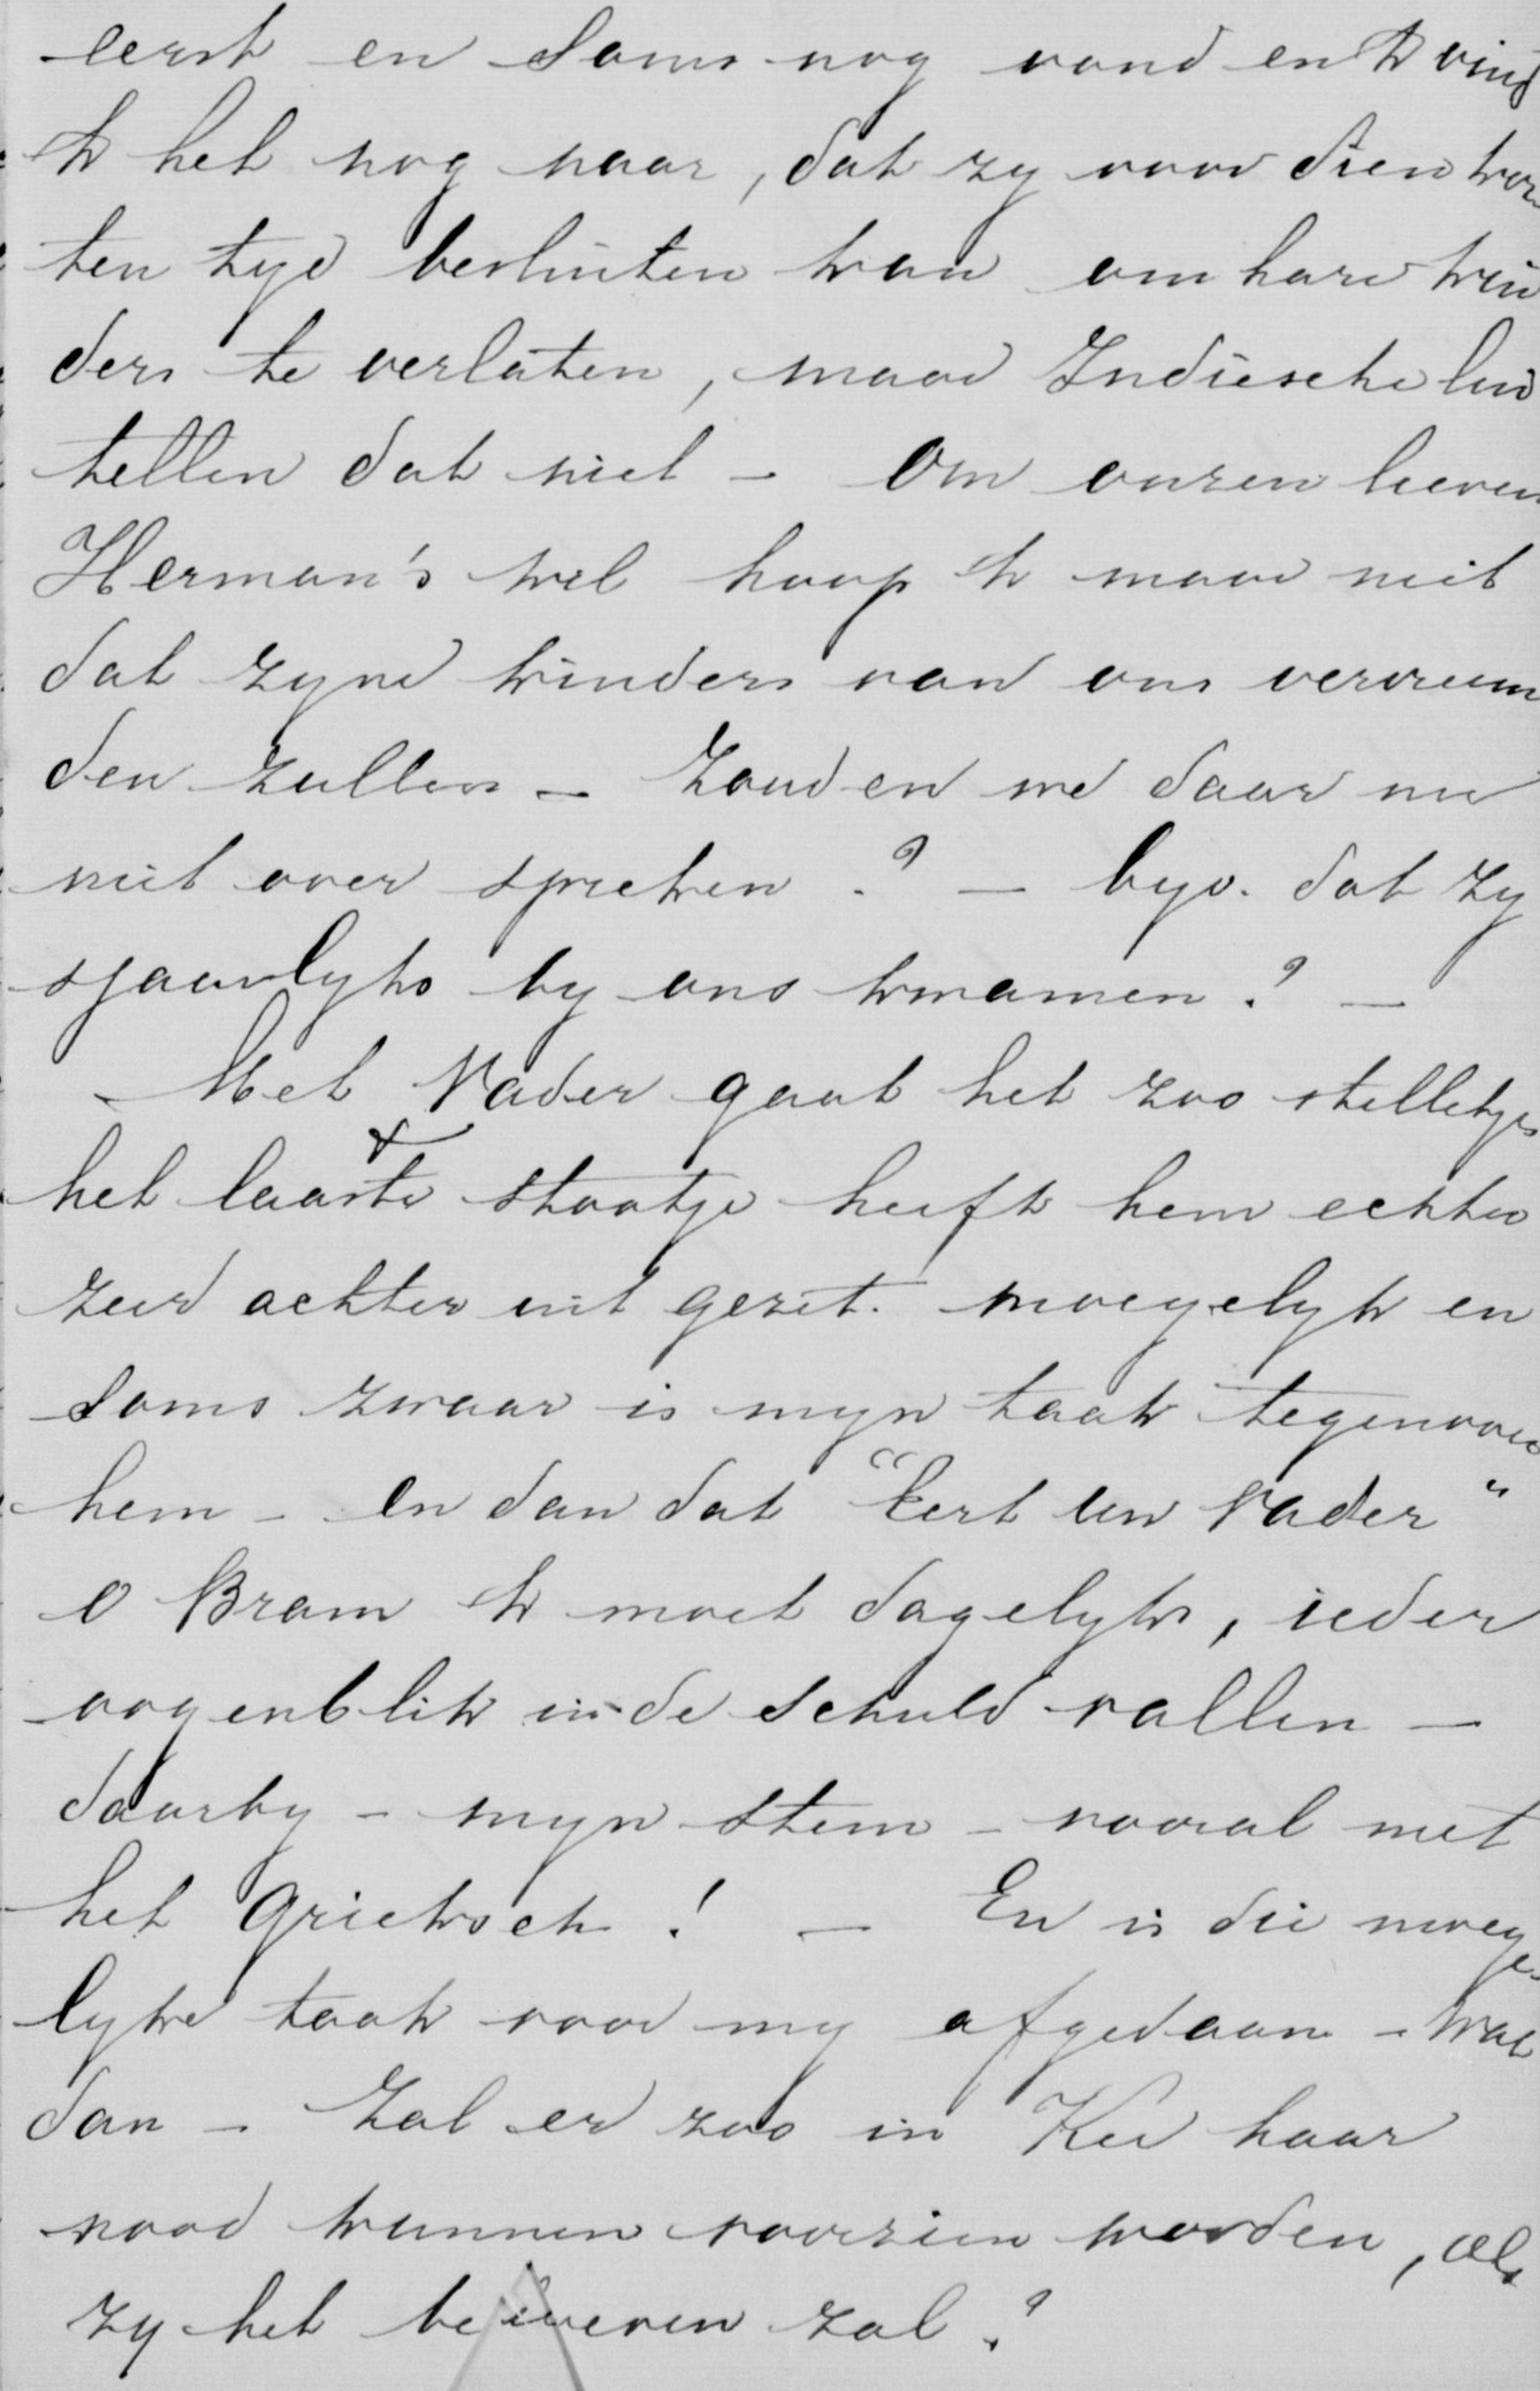 eerst en soms nog vond en ik vind
ik het nog naar, dat zy voor dien kor
ten tyd besluiten kan om hare kin
ders te verlaten, maar Indiesche lui
tellen dat niet - Om onzen lieven
Herman's wil hoop ik maar niet
dat zyne kinders van ons vervreem
den zullen - Zouden we daar nu
niet over spreken? - byv. dat zy
sjaarlyks by ons kwamen? -
Met Vader gaat het zoo stilletjes
het laatste stootje heeft hem echter
zeer achter uit gezet. moeyelyk en
soms zwaar is myn taak tegenover
hem - en dan dat "Eert uw Vader"
O Bram ik moet dagelyks, ieder
oogenblik in de schuld vallen -
daarby - myn stem - vooral met
het Grieksch! - En is die moeye
lyke taak voor my afgedaan - wat
dan - Zal er zoo in Kee haar
nood kunnen voorzien worden, als
zy het behoeven zal?